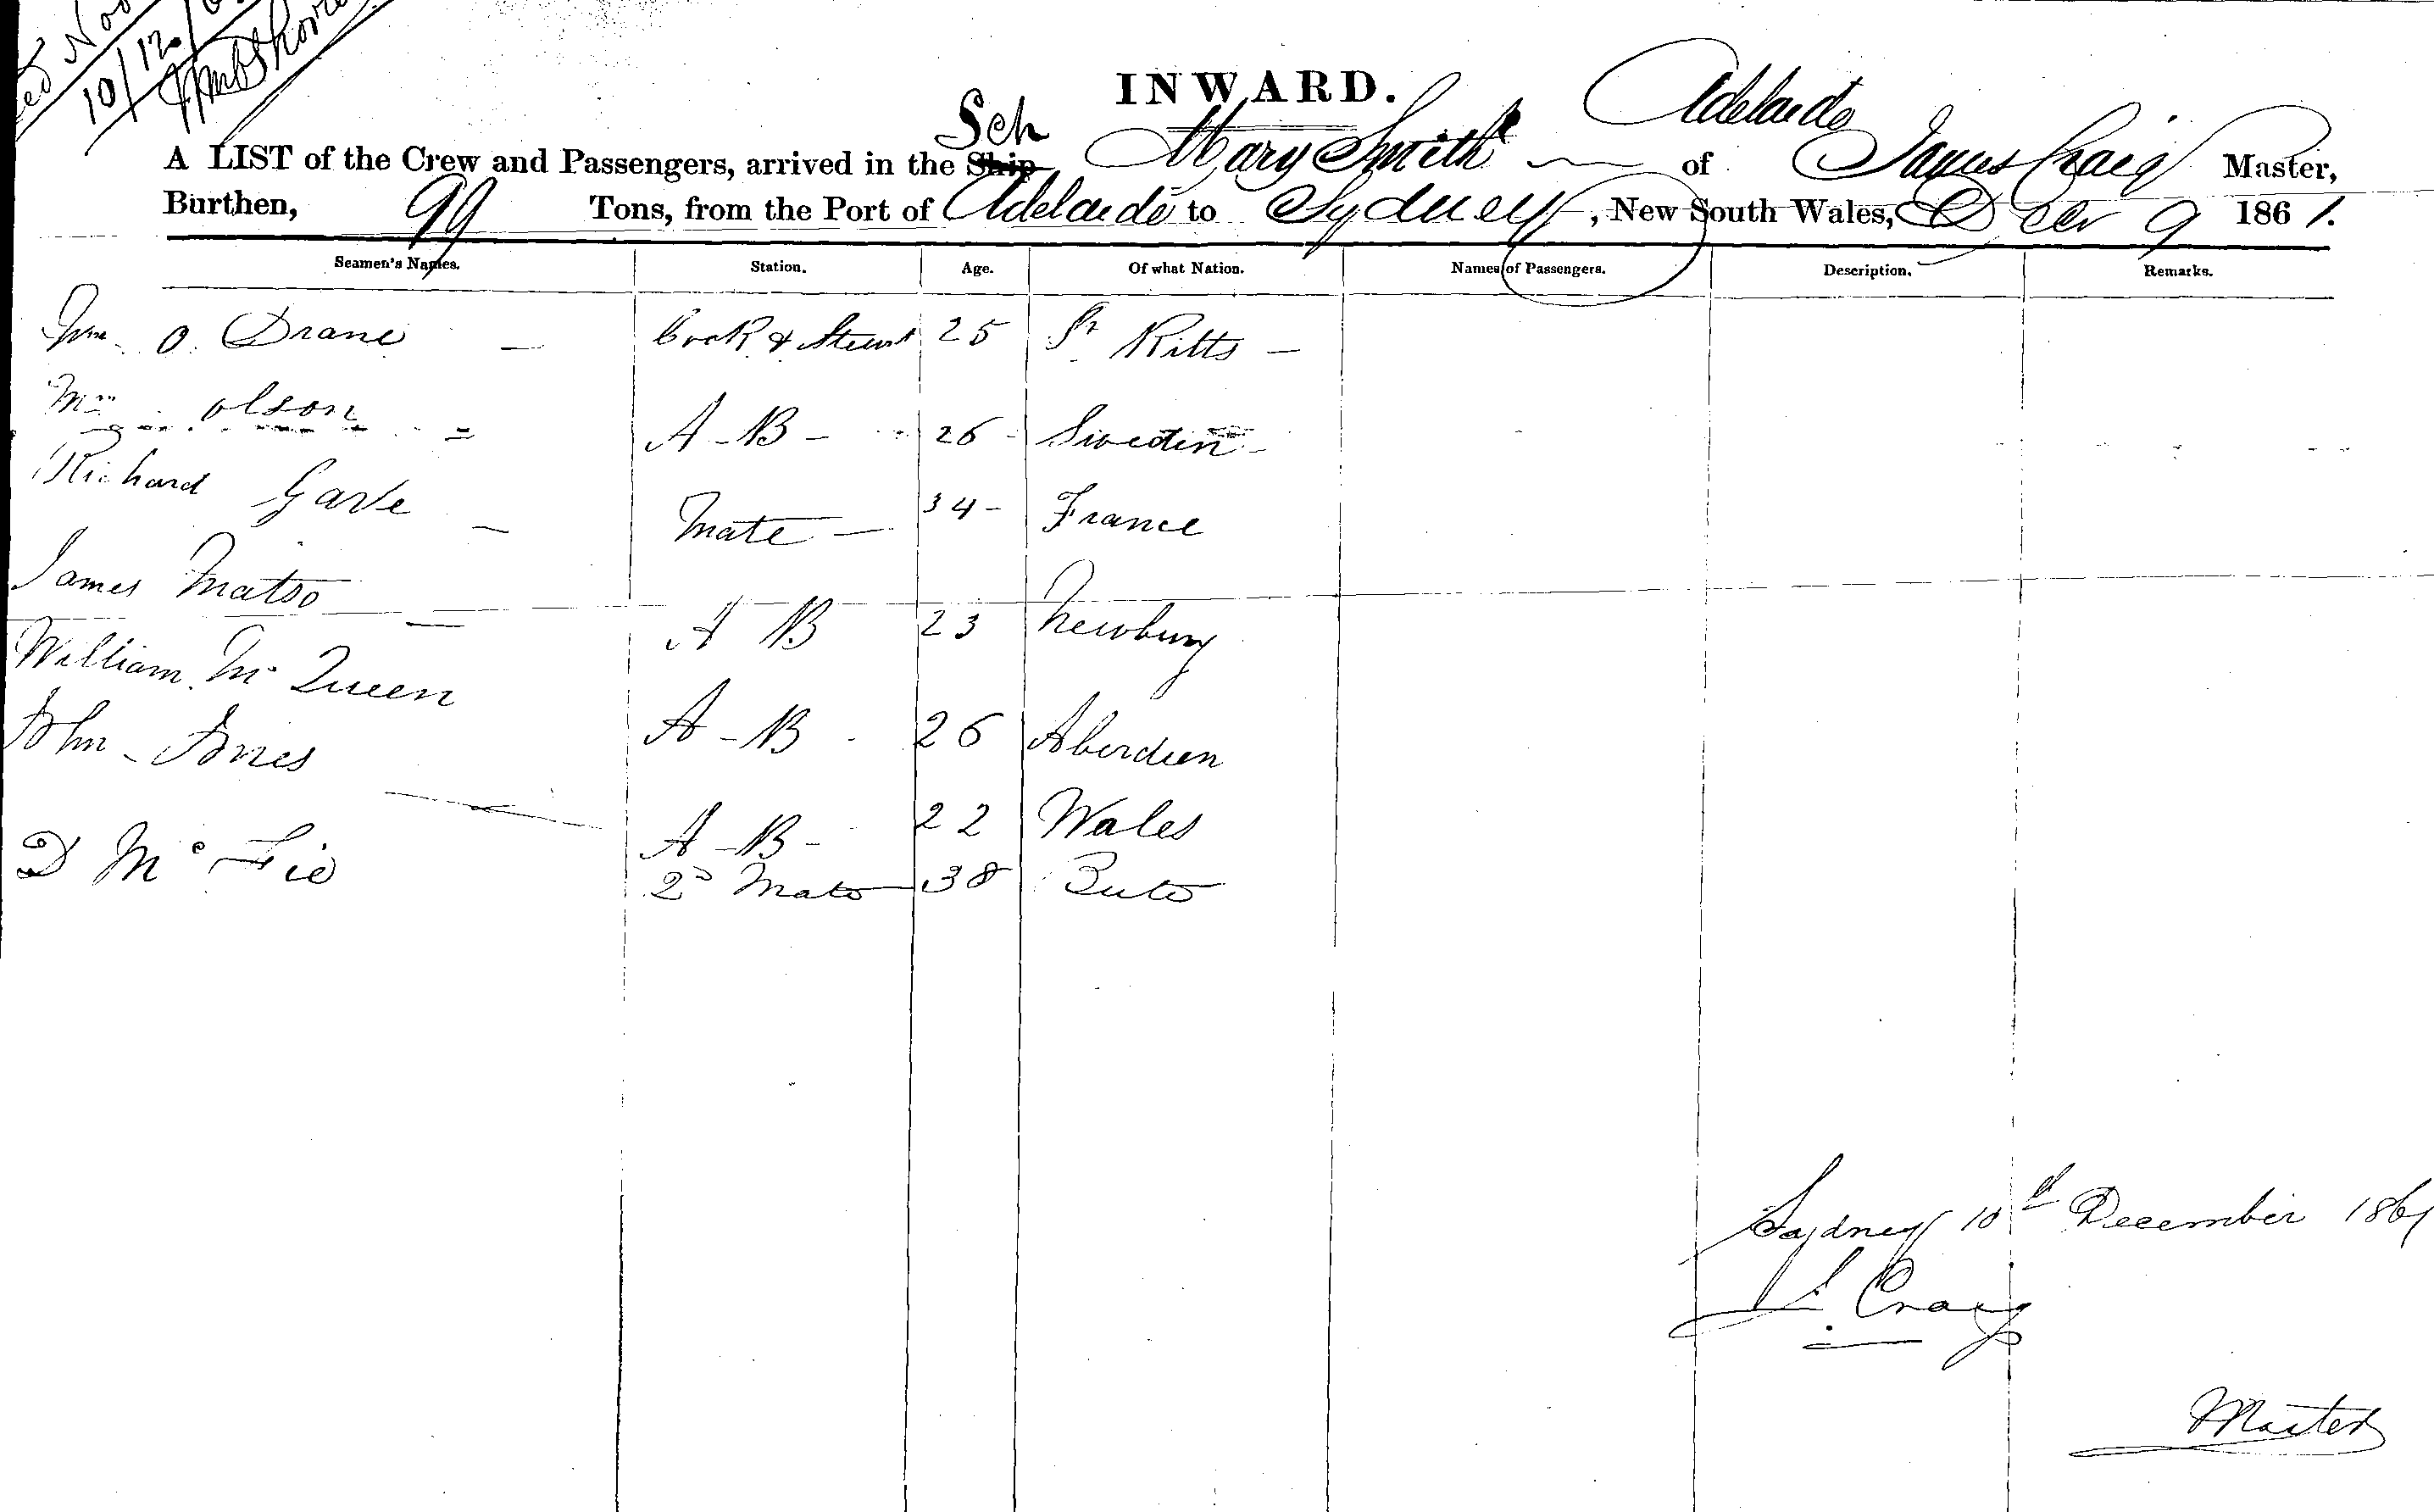 10/12
INWARD.
Adelaide
Sch
A LIST of the Crew and Passengers, arrived in the Ship Mary Smith of James Craig Master,
Burthen, 99 Tons, from the Port of Adelaide to Sydney, New South Wales, Decr 9 1861.
Seamen's Names. Station. Age. Of what Nation. Names of Passengers. Description. Remarks.
Wm. O. Drane — Cook & Stewd 25 St Kitts —
olson A-B- 26 Sweden
Richard Garle — Mate — 34 France
James Matso A B 23 Newbury
William Mc Queen A-B 26 Aberdeen
John Jones A-B- 22 Wales
D Mc Fie 2d Mate 38 Bute
Sydney 10th December 1861
J. Craig
Master